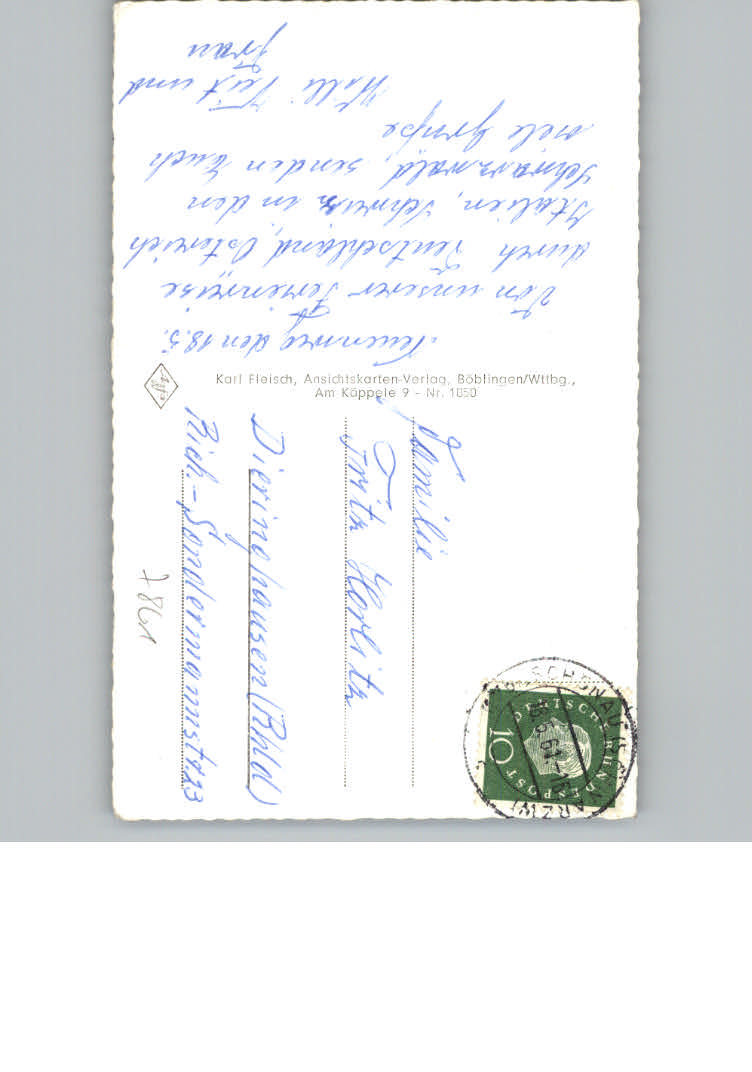 Neuenweg den 18.5.
Von unserer Ferienreise
durch Deutschland, Östereich
Italien, Schweiz in den
Schwarzwald, senden Euch
viele Grüße
Willi Veit und
Frau
Karl Fleisch, Ansichtskarten-Verlag, Böblingen/Wttbg.,
Am Käppele 9 - Nr. 1050
Familie
Fritz Horlitz
Dieringhausen (Rhld)
Rich.-Sondermannstr. 23
7861
SCHÖNAU (SCHWARZW)
18.5.61-15
DEUTSCHE BUNDESPOST
10